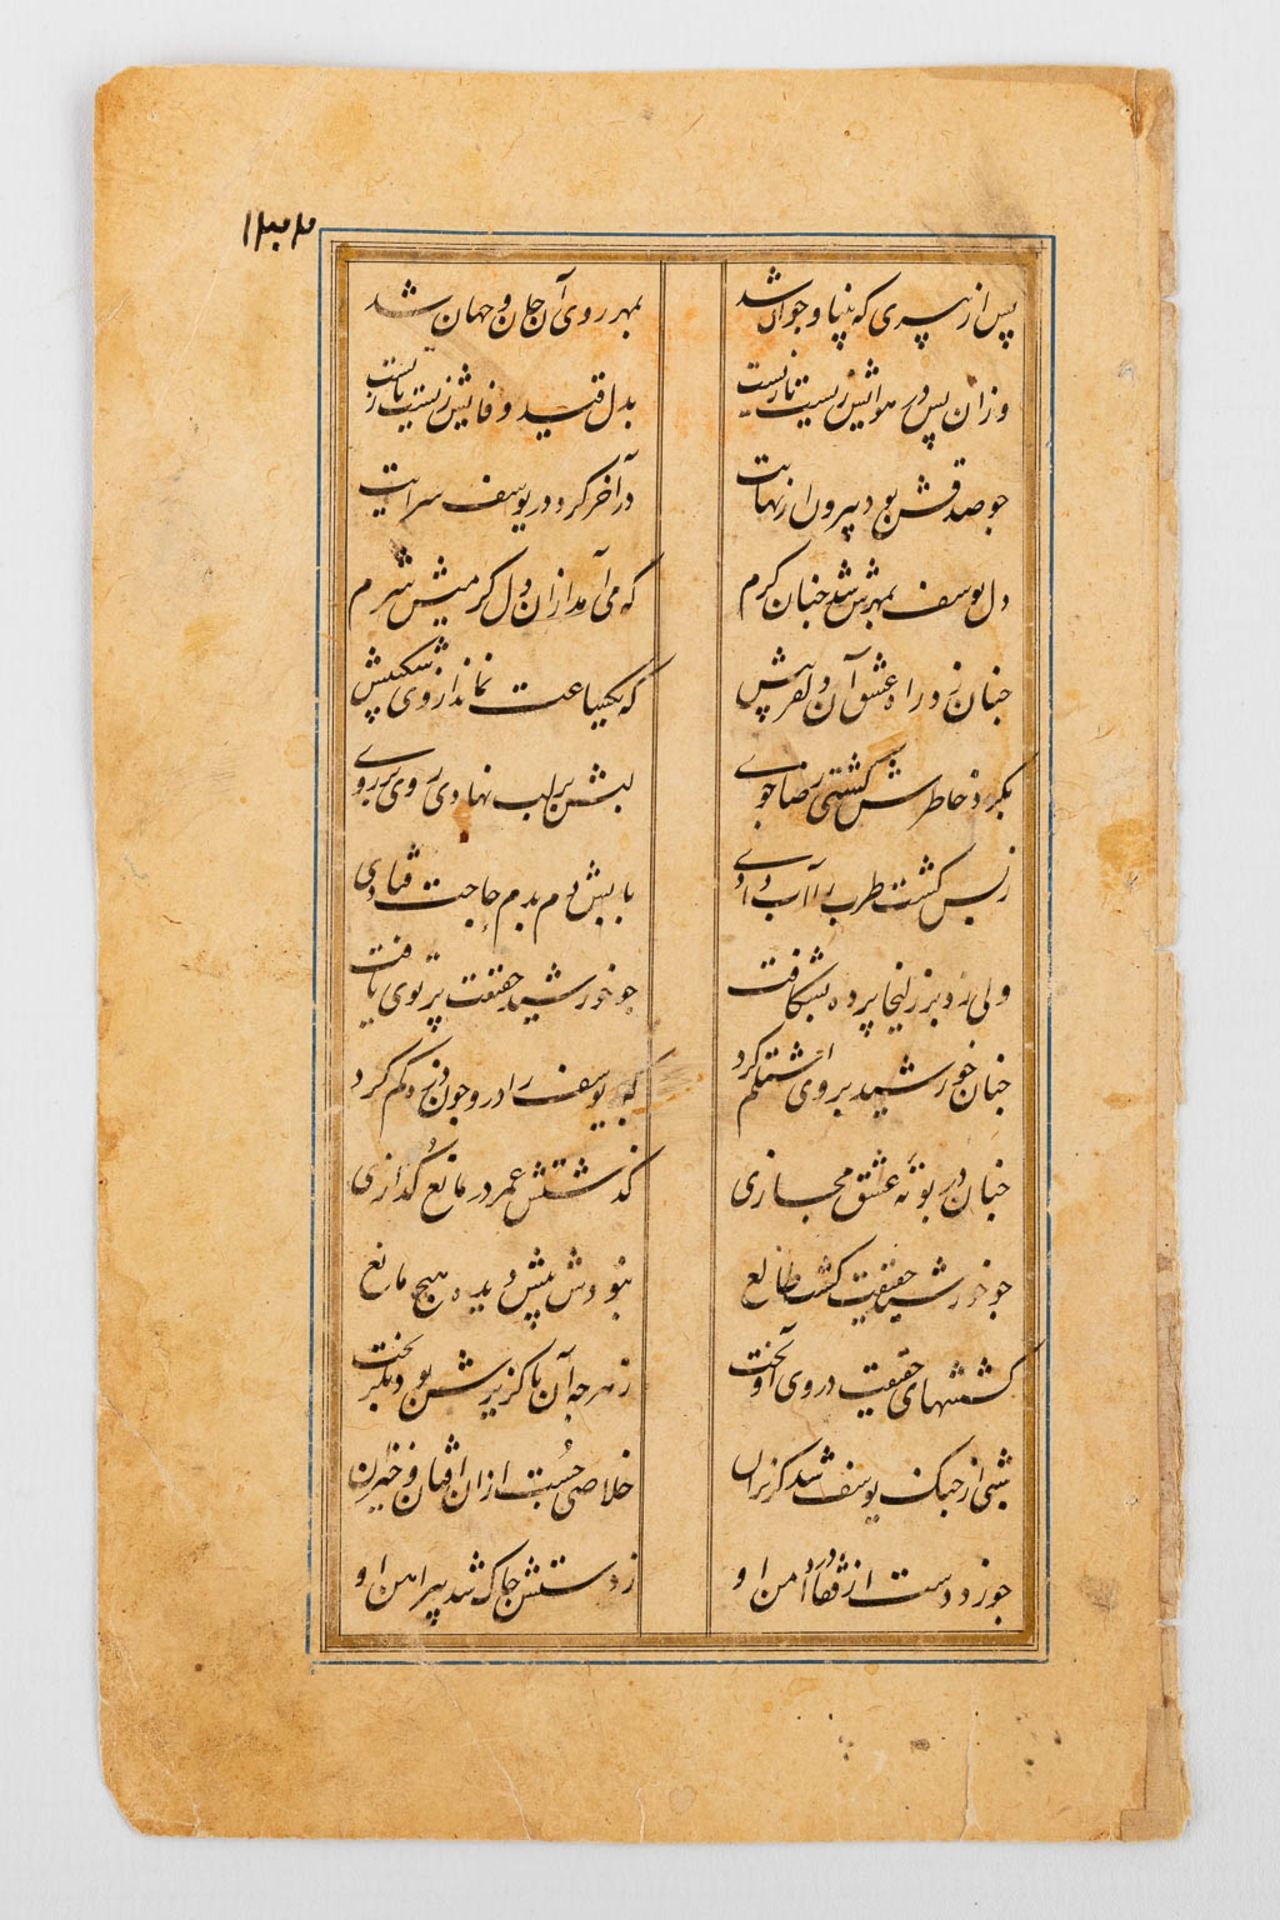 پس از پیری که بینا و جوان شد بمهر روی آن جان و جهان شد
وزان پس در هوایش زیست تا زیست بدل قید وفایش زیست تا زیست
جو صدقش بود بیرون از نهایت در آخر کرد در یوسف سرایت
دل یوسف بمهرش شد جنان کرم که می آمد ازان دل کرمیش شرم
جنان زد راه عشق آن دلفریبش که یکساعت نماند از وی شکیبش
بکرد خاطرش کشتی رضاجوی لبش بر لب نهادی روی بر روی
زبس کشت طرب را آب دادی بابش دم بدم حاجت فتادی
ولی زد بر زلیخا پرده بشکافت جو خورشید حقیقت پرتوی یافت
جنان خورشید بر وی اشتلم کرد که یوسف را در و جون ذره کم کرد
جنان در بوته عشق مجازی کذشتش عمر در مانع کدازی
جو خورشید حقیقت کشت طالع نبودش پیش دیده هیچ مانع
کششهای حقیقت در وی آویخت ز هر جه آن ناکزیرش بود بکریخت
شبی از جنک یوسف شد کریزان خلاصی جست ازان افتان و خیزان
جو زد دست از قفا در دامن او ز دستش جاک شد پیراهن او